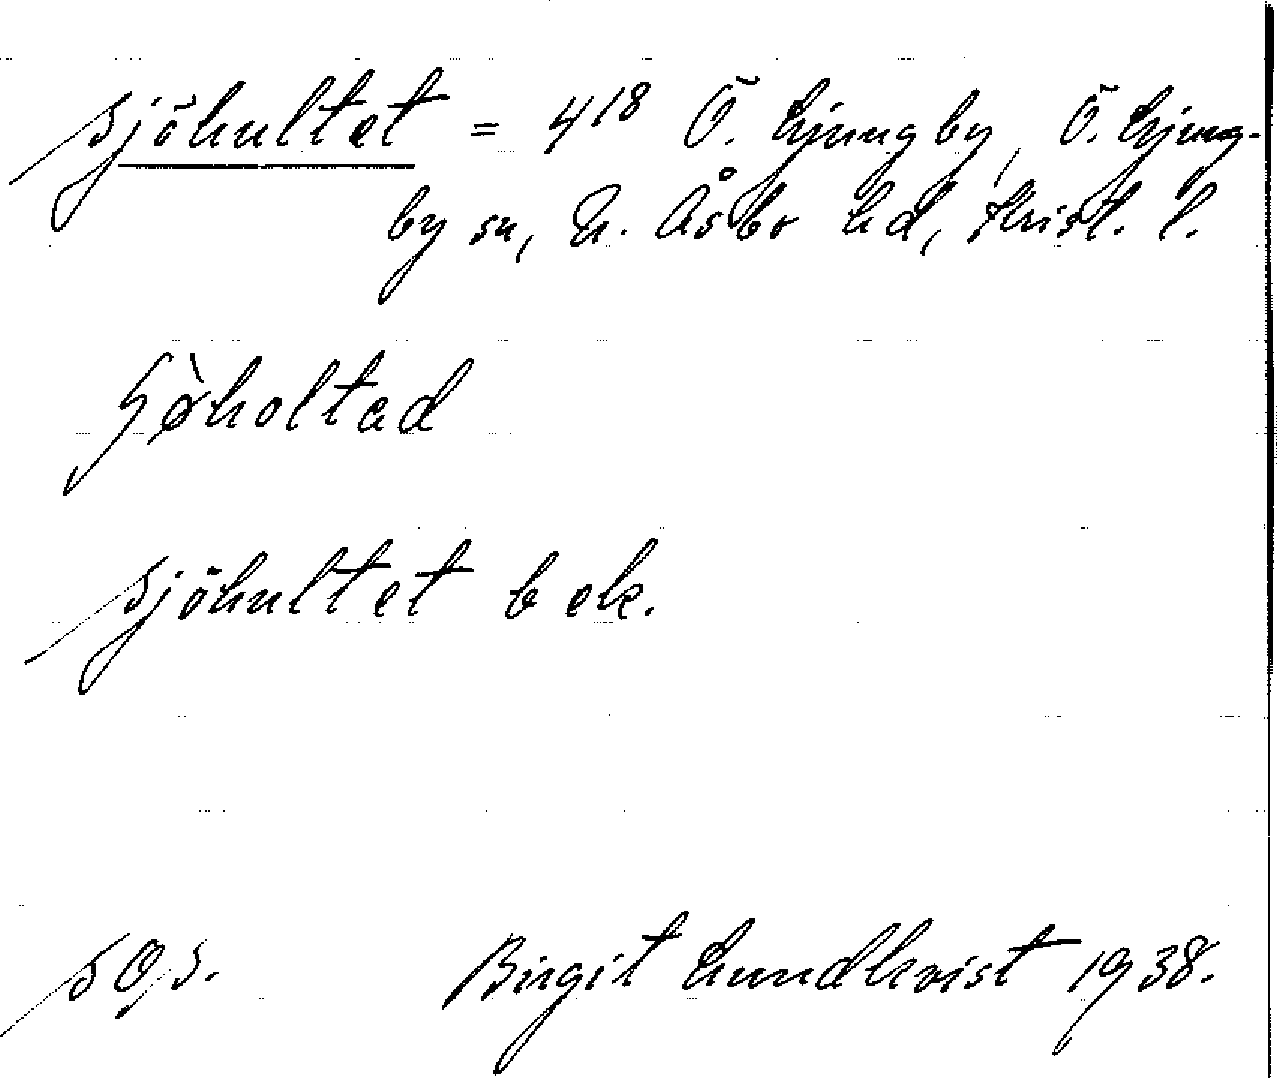 Sjöhultet = 4¹⁸ Ö. Ljungby, Ö. Ljung-
by sn, N. Åsbo hd, Krist. l.
ʃø̀holtad
Sjöhultet bek.
SOS. Birgit Lundkvist 1938.